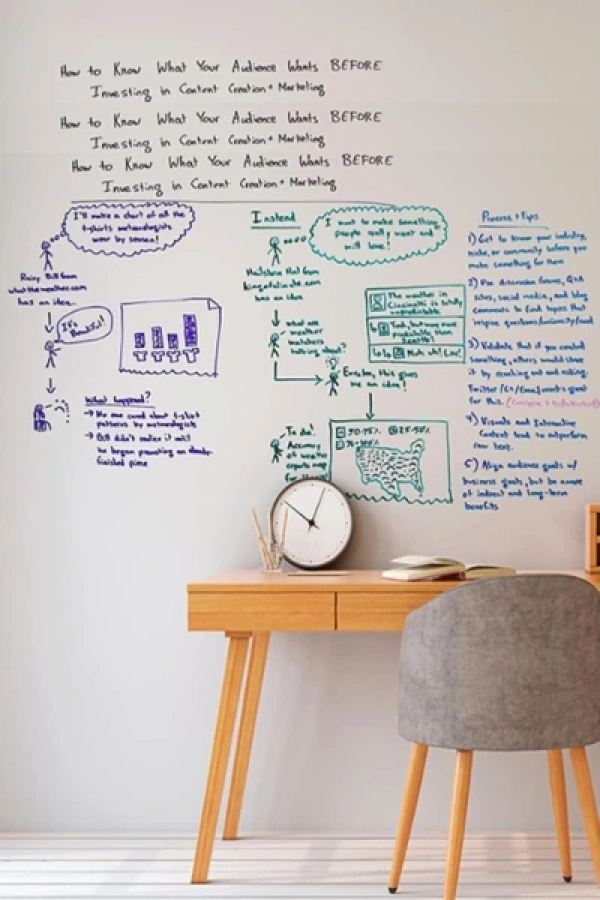 How to Know What Your Audience Wants BEFORE
Investing in Content Creation + Marketing
How to Know What Your Audience Wants BEFORE
Investing in Content Creation + Marketing
How to Know What Your Audience Wants BEFORE
Investing in Content Creation + Marketing
I'll make a chart of all the
t-shirts meteorologists
wear by season!
Rainy Bill from
whattheweather.com
has an idea...
It's
Beautiful!
What happened?
→ No one cared about t-shirt
patterns by meteorologists
→ Bill didn't realize it until
he began promoting an
finished piece
Instead
I want to make something
people really want and
will love!
Hailstorm Hal from
has an idea
what are
weather
watchers
talking about?
The weather in
is totally
unpredictable
Yeah, but way more
predictable than
Seattle!
Nuh uh! Liar!
Eureka, this gives
me an idea!
To do:
Accuracy
of weather
reports map
for
50-75%
25-50%
75-100%
Process + Tips
1) Get to know your industry,
niche, or community before you
make something for them
2) Use discussion forums, Q&A
sites, social media, and blog
comments to find topics that
inspire questions/curiosity/need
3) Validate that if you created
something, others would share
it by reaching out and asking.
Twitter/G+/Email works great
for this.
4) Visuals and Interactive
Content tend to outperform
raw text.
5) Align audience goals w/
business goals, but be aware
of indirect and long-term
benefits